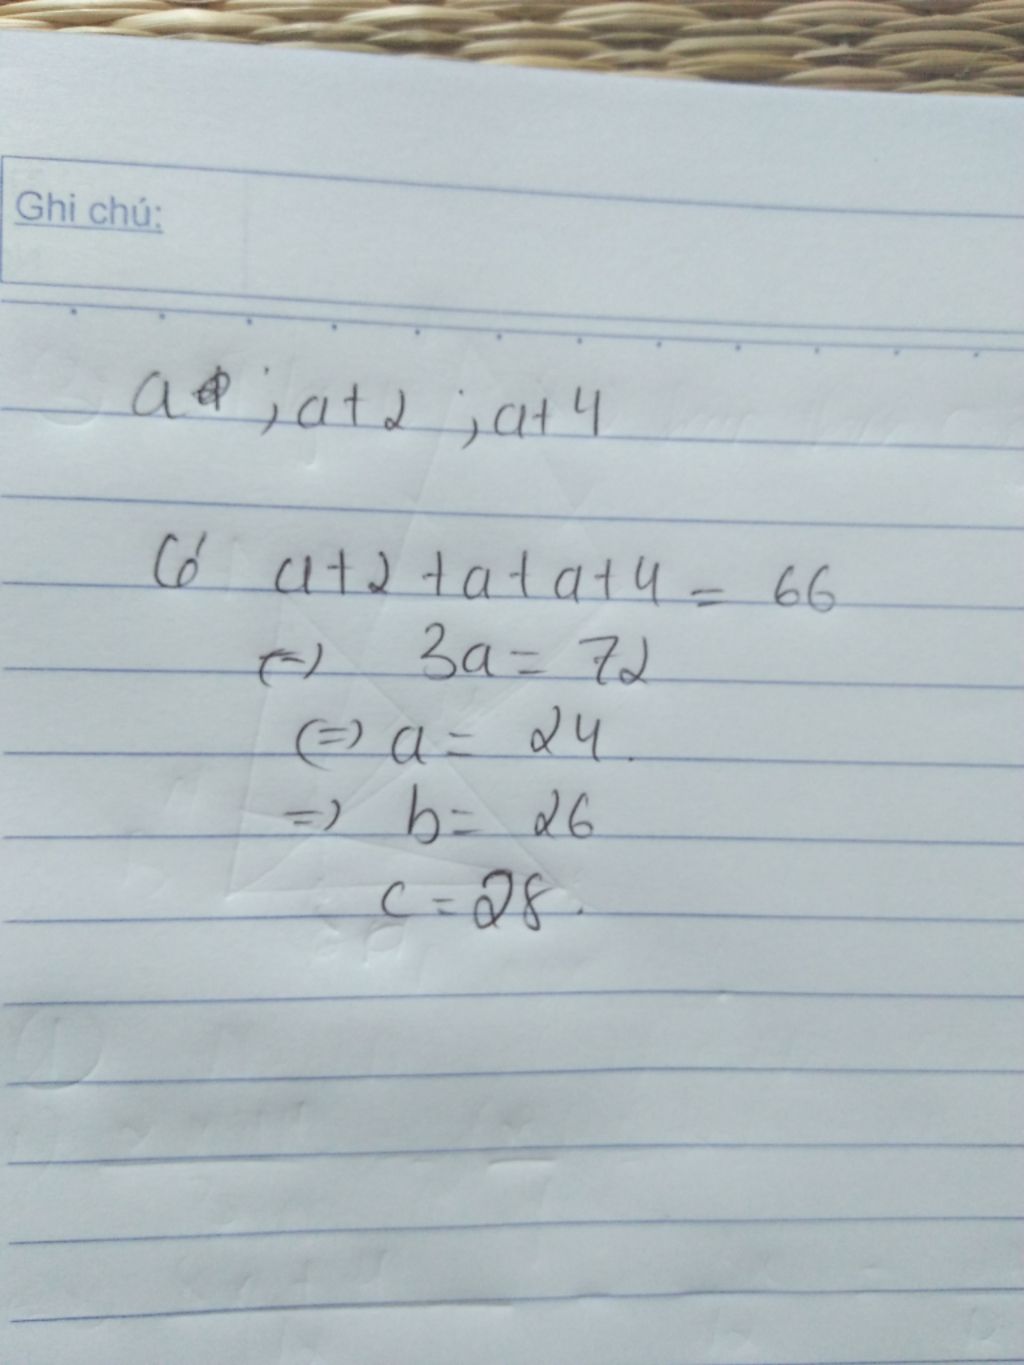 Ghi chú:
a ; a+2 ; a+4
Có a+2+a+a+4 = 66
(=) 3a = 72
(=) a = 24.
=) b = 26
c = 28.